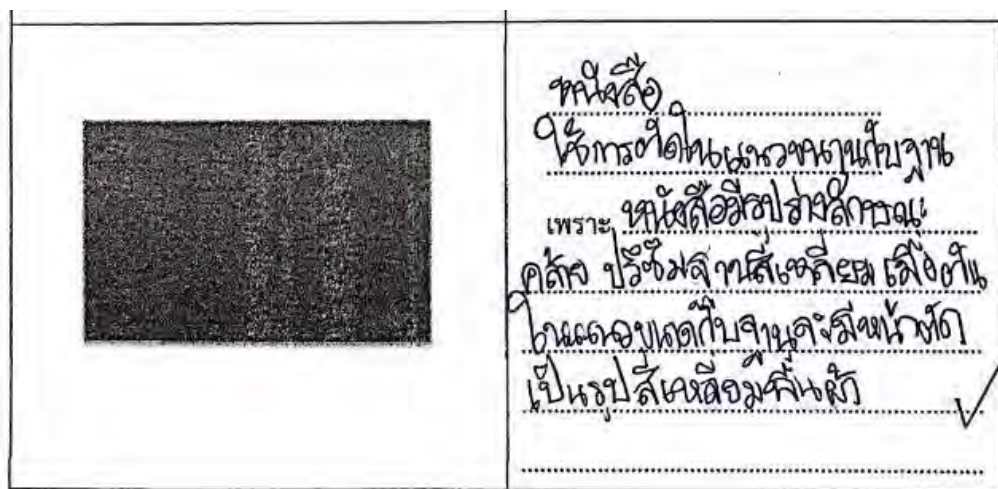 หนังสือ
ใช้การตัดในแนวขนานกับฐาน
เพราะ หนังสือมีรูปร่างลักษณะ
คล้าย ปริซึมฐานสี่เหลี่ยม เมื่อตัด
ในแนวขนานกับฐานจะมีหน้าตัด
เป็นรูปสี่เหลี่ยมผืนผ้า